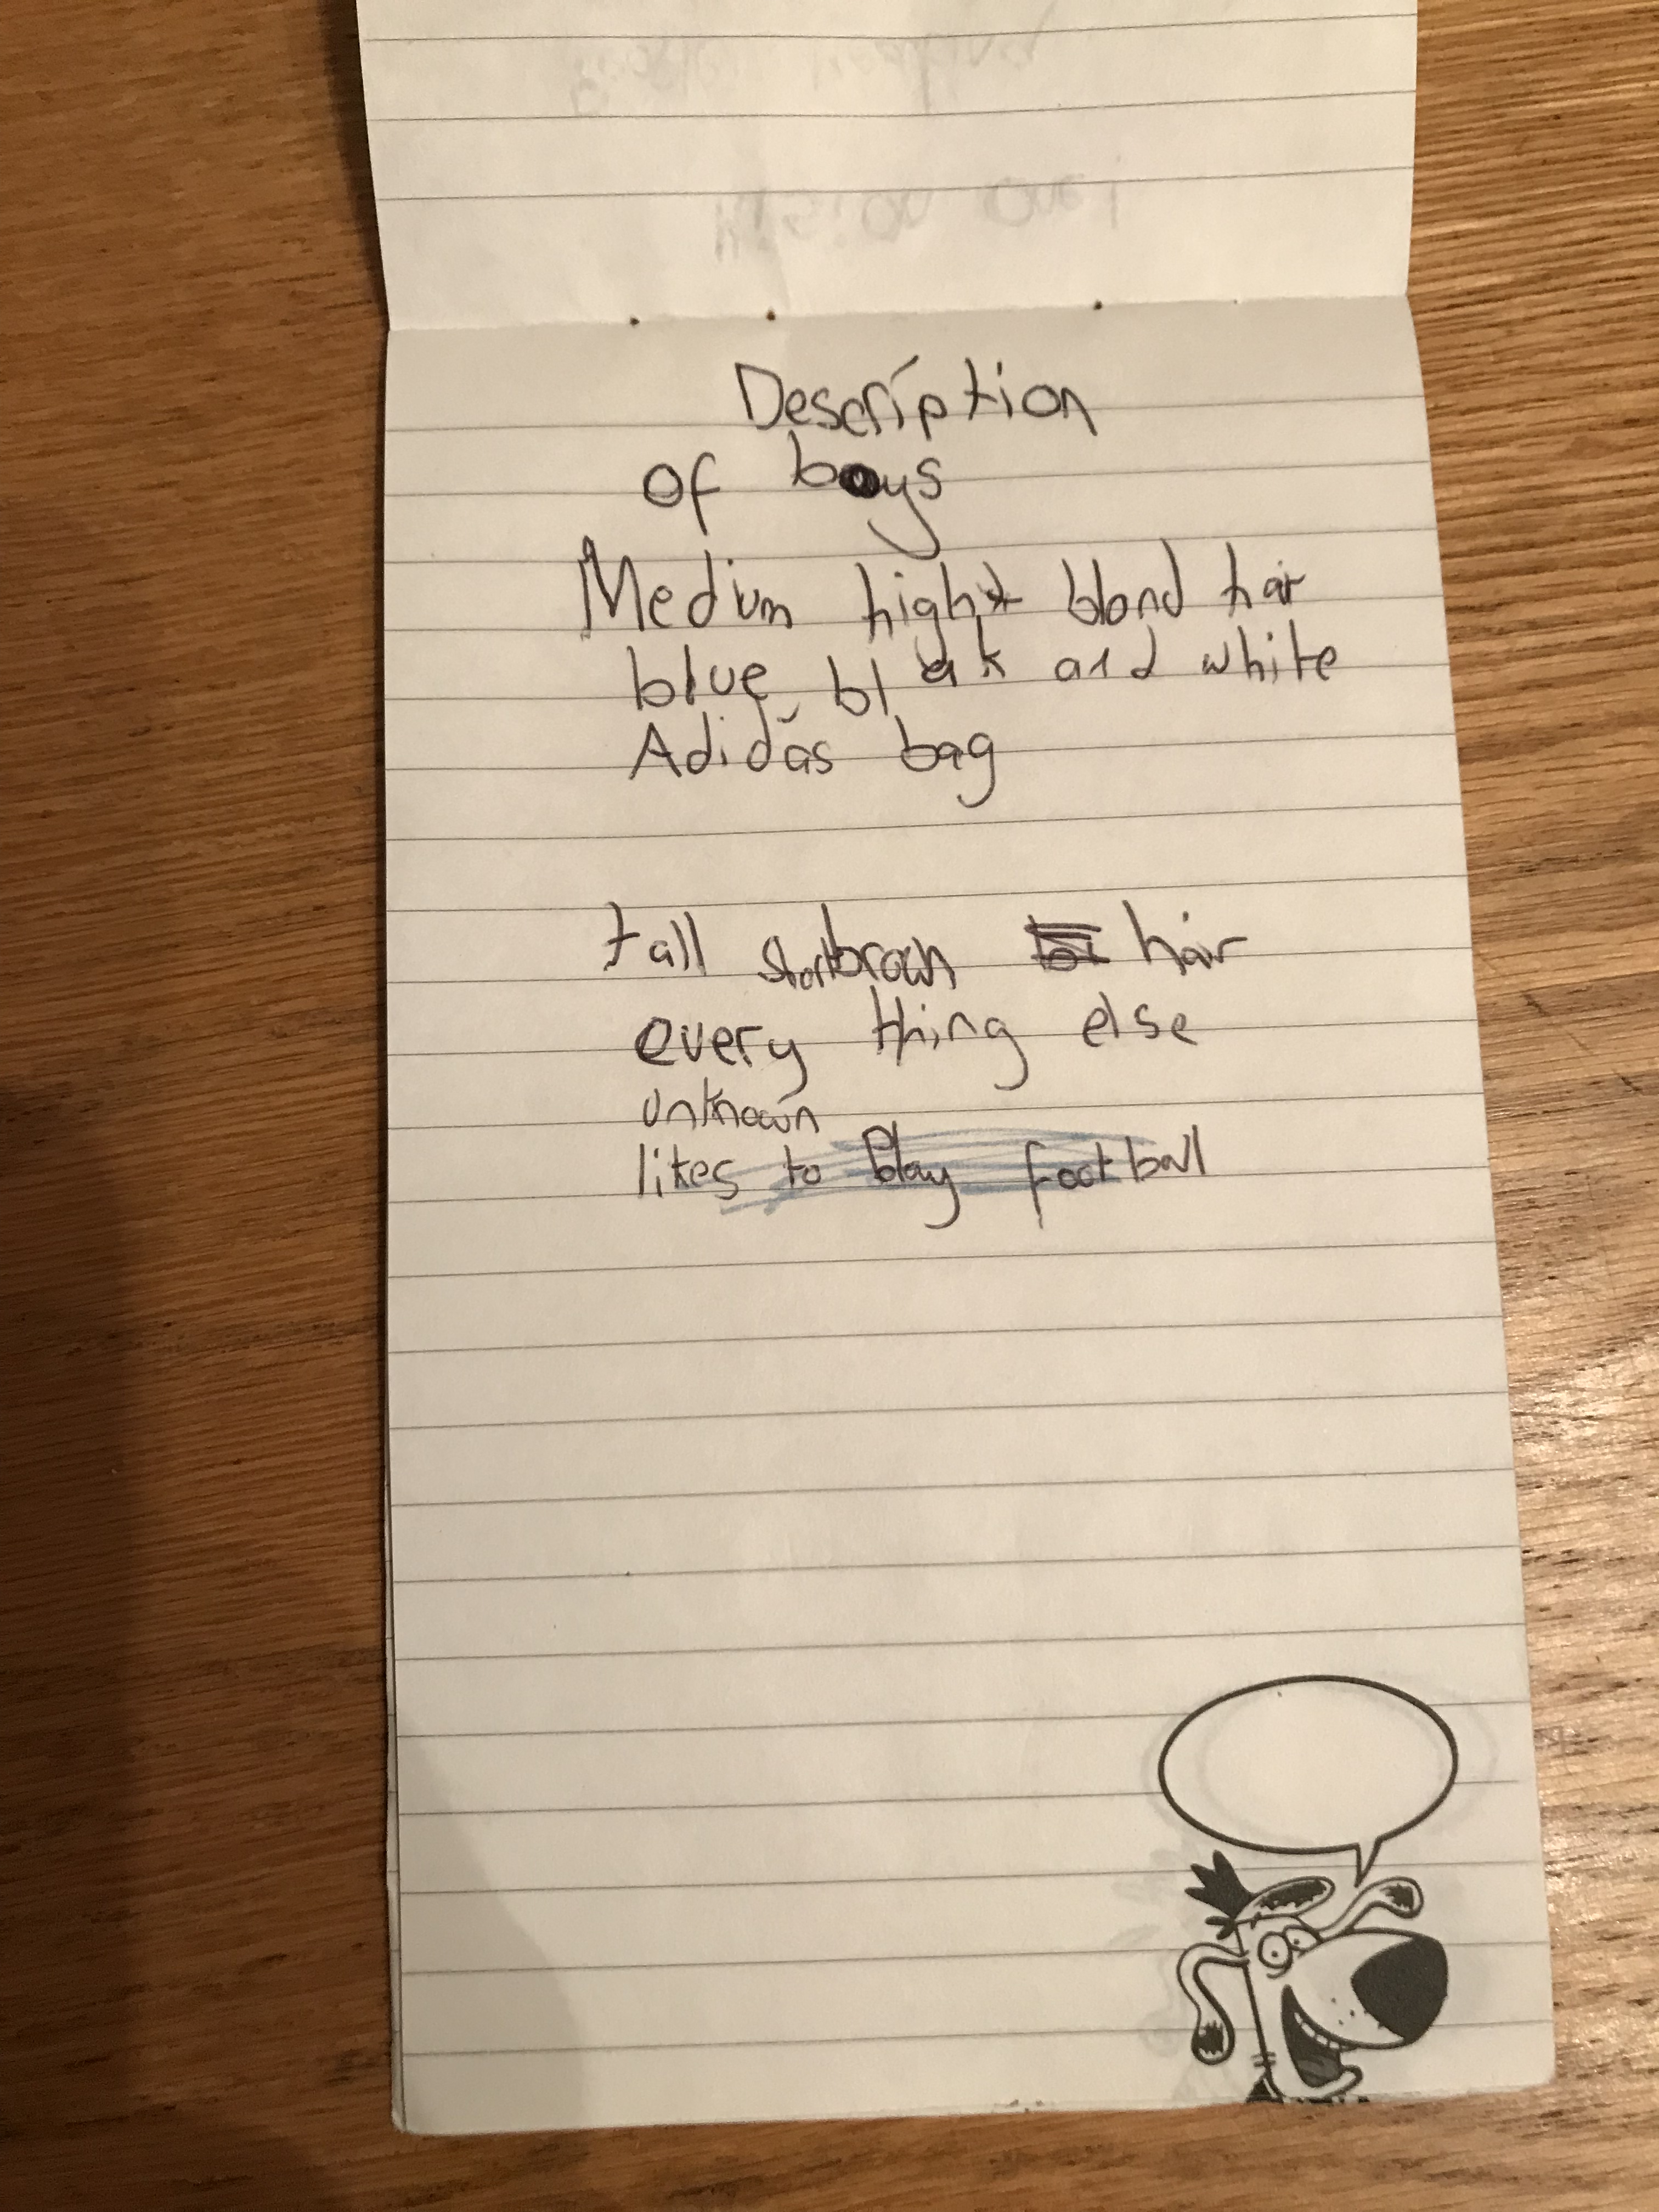 Description
of boys
Medium hight blond hair
blue blak and white
Adidas bag
tall short brown hair
every thing else
unknown
likes to play football